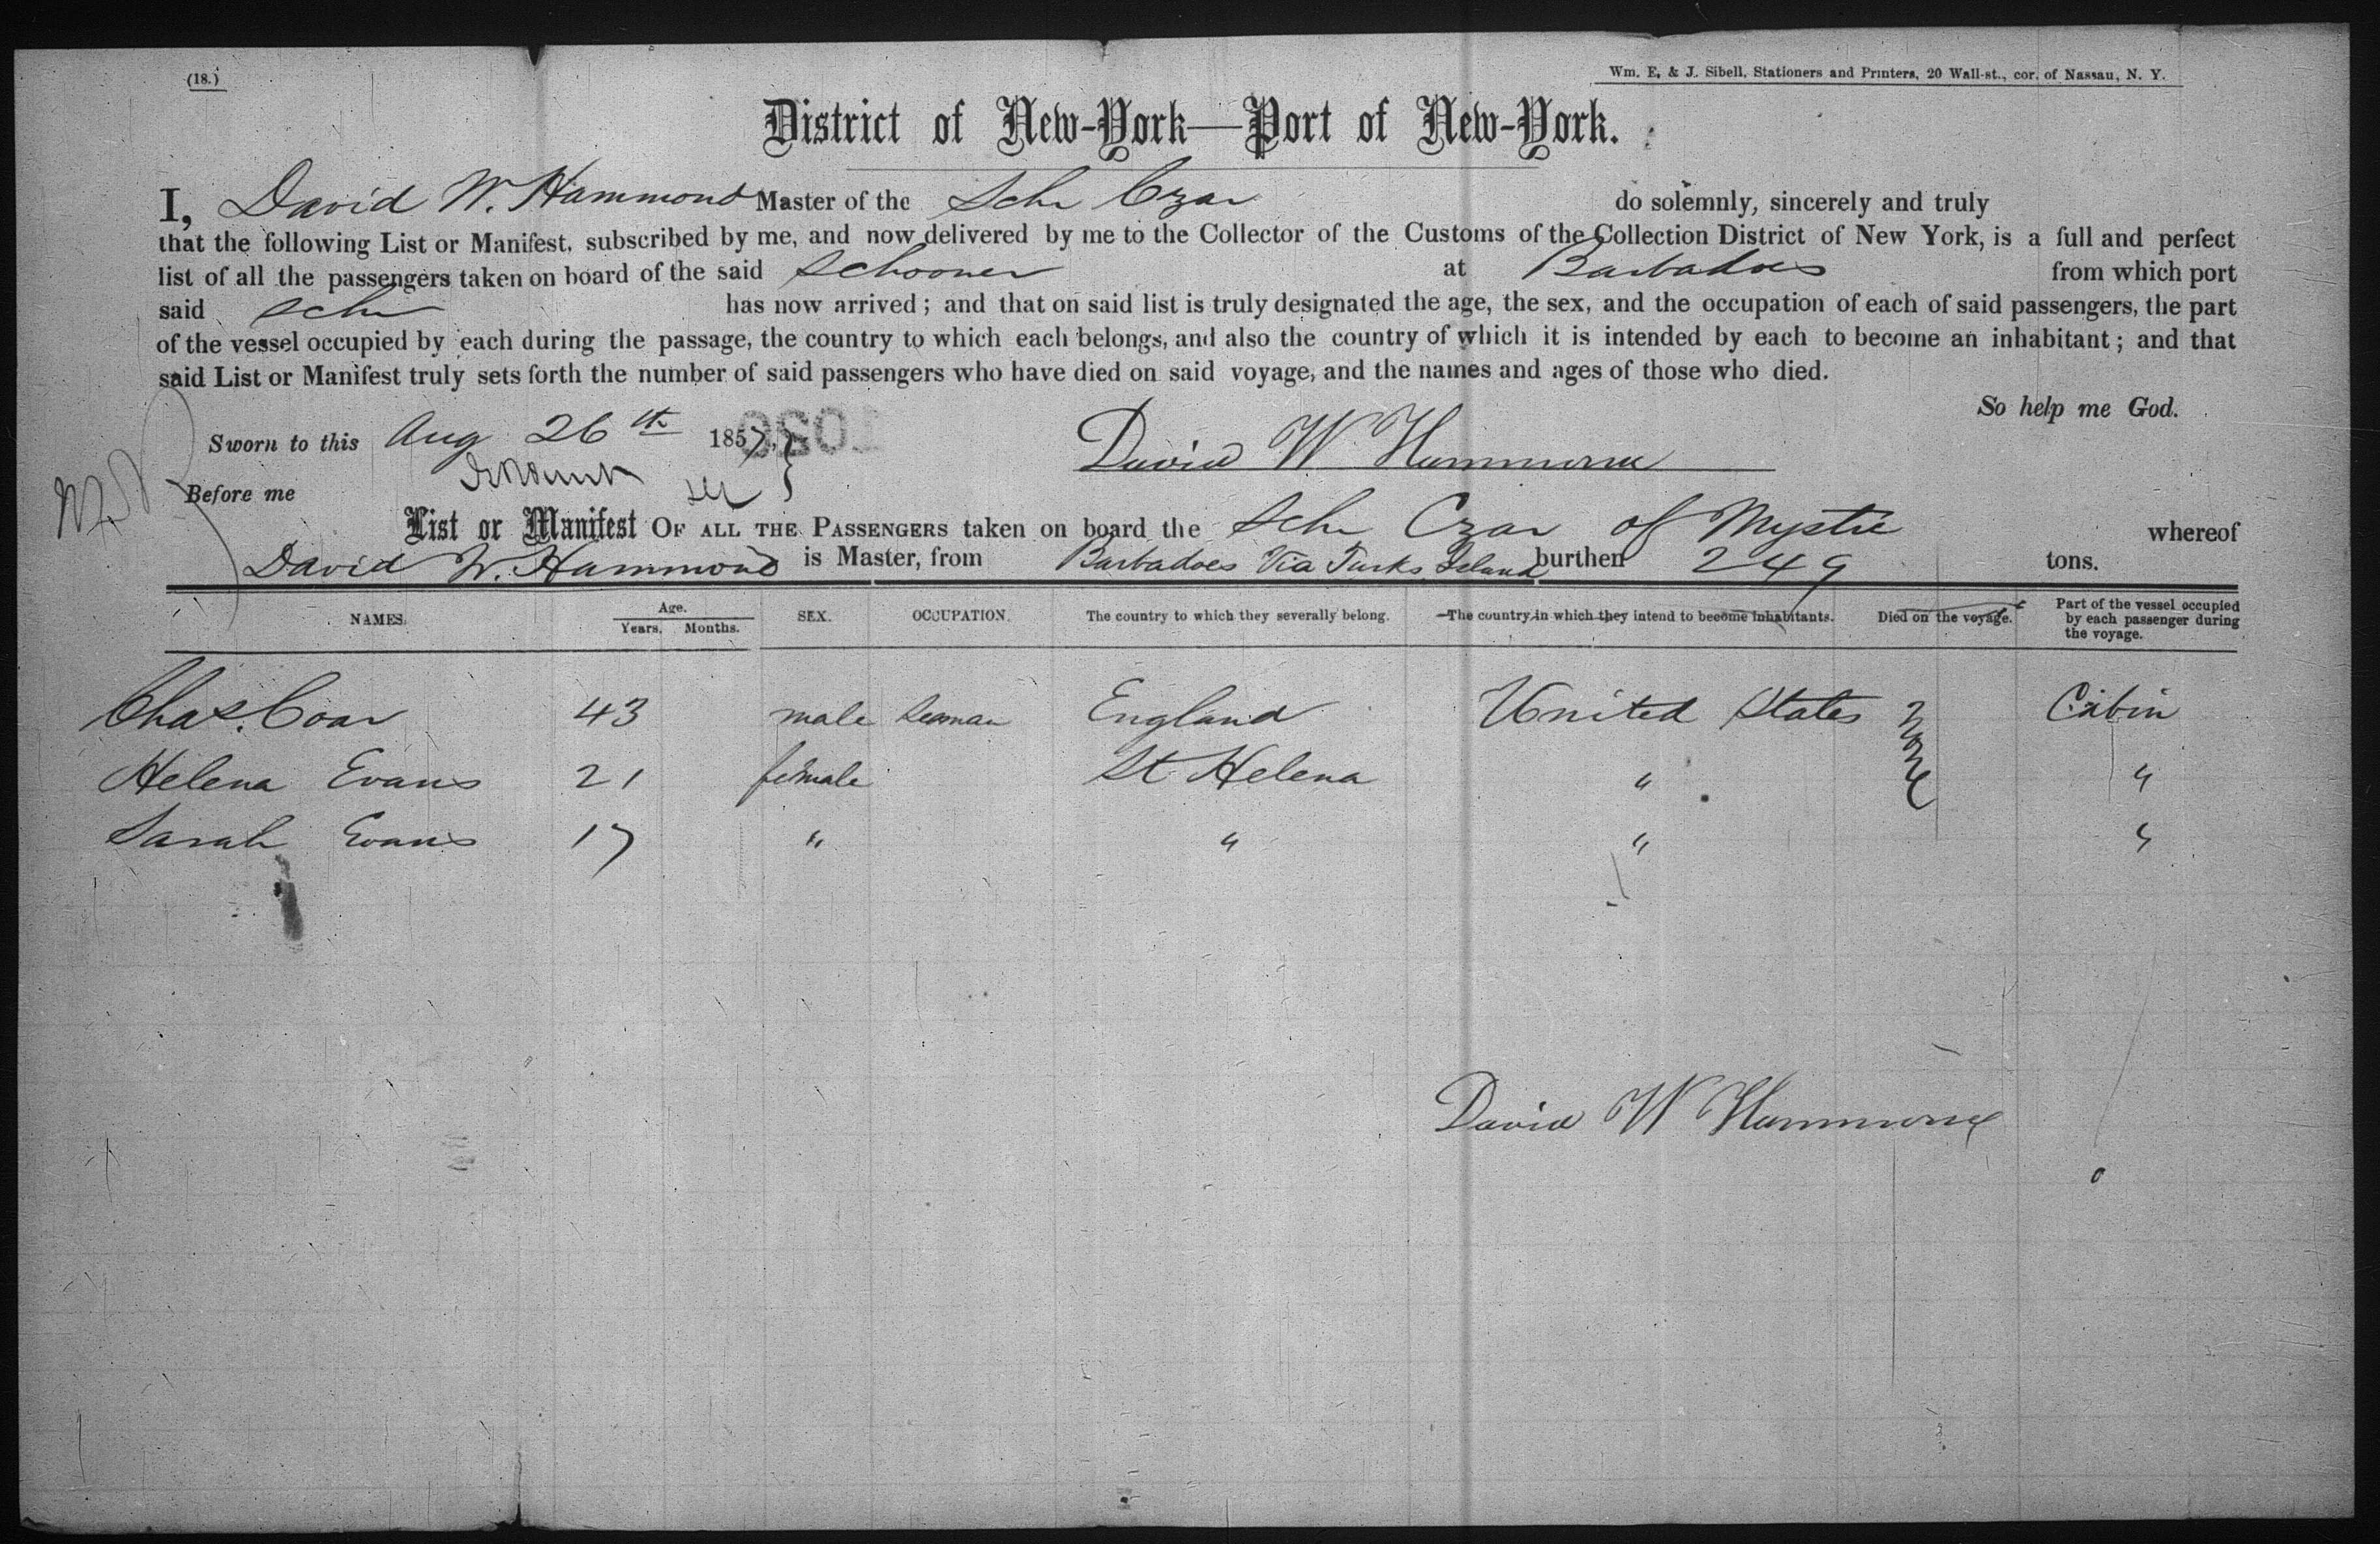 (18.)
Wm. E. & J. Sibell, Stationers and Printers, 20 Wall-st., cor. of Nassau, N. Y.
District of New-York—Port of New-York.
I, David W. Hammond Master of the Schr Czar do solemnly, sincerely and truly
that the following List or Manifest, subscribed by me, and now delivered by me to the Collector of the Customs of the Collection District of New York, is a full and perfect
list of all the passengers taken on board of the said Schooner at Barbadoes from which port
said schr has now arrived; and that on said list is truly designated the age, the sex, and the occupation of each of said passengers, the part
of the vessel occupied by each during the passage, the country to which each belongs, and also the country of which it is intended by each to become an inhabitant; and that
said List or Manifest truly sets forth the number of said passengers who have died on said voyage, and the names and ages of those who died.
So help me God.
Sworn to this Aug 26th 1857, David W Hammond
Before me
List or Manifest OF ALL THE PASSENGERS taken on board the Schr Czar of Mystic whereof
David W. Hammond is Master, from Barbadoes Via Turks Island burthen 249 tons.
NAMES. Age. Years. Months. SEX. OCCUPATION. The country to which they severally belong. The country in which they intend to become inhabitants. Died on the voyage. Part of the vessel occupied by each passenger during the voyage.
Chas. Coar 43 male Seaman England United States None Cabin
Helena Evans 21 female St. Helena " "
Sarah Evans 17 " " " "
David W Hammond